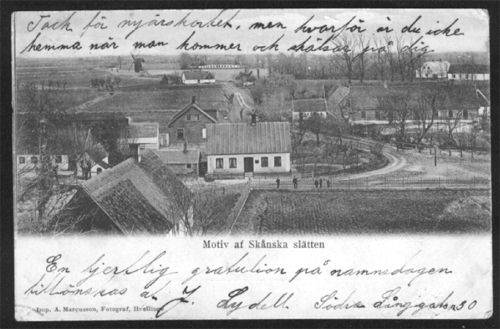 Tack för nyårskortet, men hvarför är du icke
hemma när man kommer och hälsar på dig
Motiv af Skånska slätten
En hjertlig gratulation på namnsdagen
tillönskas af J. Lydell Södra Långgatan 30
Imp. A. Marcusson, Fotograf, Hvellinge